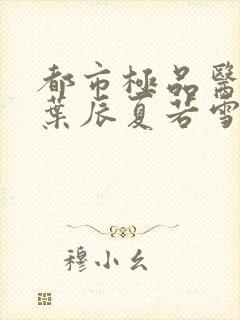 都市極品醫
葉辰夏若雪
穆小幺